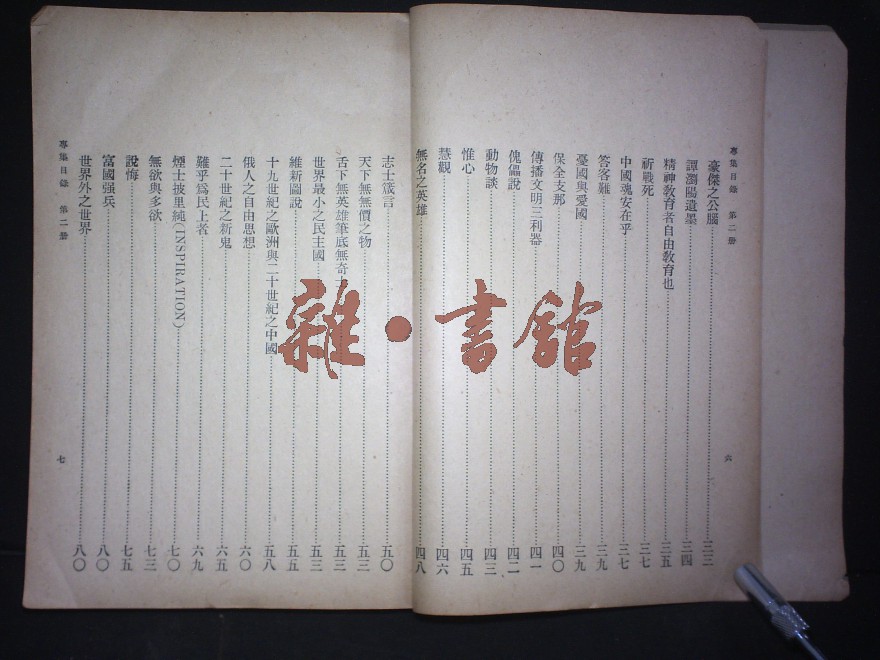 專集目錄 第二册
豪傑之公腦……三三
譚瀏陽遺墨……三四
精神敎育者自由敎育也……三五
祈戰死……三七
中國魂安在乎……三七
答客難……三九
憂國與愛國……三九
保全支那……四〇
傳播文明三利器……四一
傀儡說……四二
動物談……四三
惟心……四五
慧觀……四六
無名之英雄……四八
六
志士箴言……五〇
天下無無價之物……五三
舌下無英雄筆底無奇……五三
世界最小之民主國……五三
維新圖說……五五
十九世紀之歐洲與二十世紀之中國……五八
俄人之自由思想……六〇
二十世紀之新鬼……六五
難乎爲民上者……六九
煙士披里純(INSPIRATION)……七〇
無欲與多欲……七三
說悔……七五
富國强兵……八〇
世界外之世界……八〇
專集目錄 第二册
七
雜·書舘